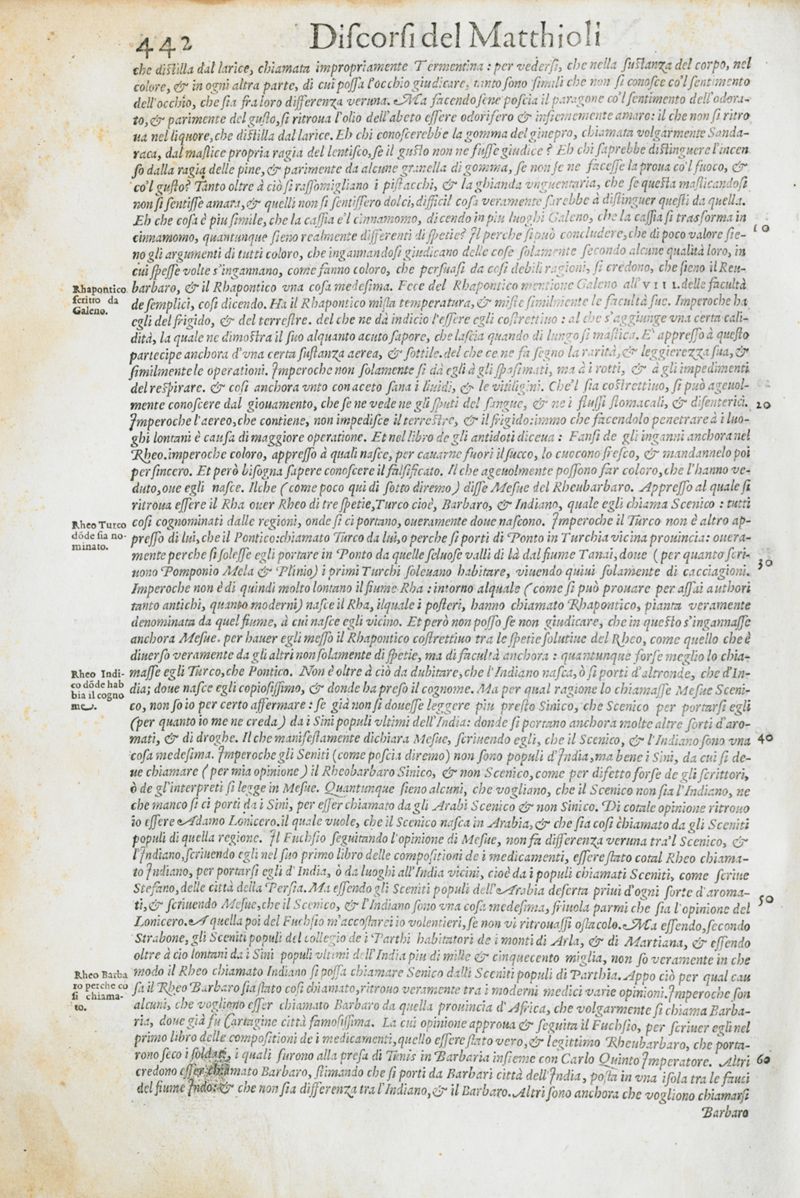 442 Diſcorſi del Matthioli
che diſtilla dal larice, chiamata impropriamente Termentina : per vederſi, che nella ſuſtanza del corpo, nel
colore, & in ogni altra parte, di cui poſſa l'occhio giudicare, tanto ſono ſimili che non ſi conoſce co'l ſentimento
dell'occhio, che ſia fra loro differenza veruna. Ma facendoſene poſcia il paragone co'l ſentimento dell'odora-
to, & parimente del guſto, ſi ritroua l'olio dell'abeto eſſere odorifero & inſiememente amaro: il che non ſi ritro
ua nel liquore, che diſtilla dal larice. Eh chi conoſcerebbe la gomma del ginepro, chiamata volgarmente Sanda-
raca, dal maſtice propria ragia del lentiſco, ſe il guſto non ne fuſſe giudice ? Eh chi ſaprebbe diſtinguere l'incen
ſo dalla ragia delle pine, & parimente da alcune granella di gomma, ſe non ſe ne faceſſe la proua co'l fuoco, &
co'l guſto? Tanto oltre à ciò ſi raſſomigliano i piſtacchi, & la ghianda vnguentaria, che ſe queſta maſticandoſi
non ſi ſentiſſe amara, & quelli non ſi ſentiſſero dolci, difficil coſa veramente ſarebbe à diſtinguer queſti da quella.
Eh che coſa è piu ſimile, che la caſſia e'l cinnamomo, dicendo in piu luoghi Galeno, che la caſſia ſi trasforma in
cinnamomo, quantunque ſieno realmente differenti di ſpetie? Il perche ſi può concludere, che di poco valore ſie- 10
no gli argumenti di tutti coloro, che ingannandoſi giudicano delle coſe ſolamente ſecondo alcune qualità loro, in
cui ſpeſſe volte s'ingannano, come fanno coloro, che perſuaſi da coſi debili ragioni, ſi credono, che ſieno il Reu-
Rhapontico ſcritto da Galeno.
barbaro, & il Rhapontico vna coſa medeſima. Fece del Rhapontico mentione Galeno all'VIII. delle facultà
de ſemplici, coſi dicendo. Ha il Rhapontico miſta temperatura, & miſte ſimilmente le facultà ſue. Imperoche ha
egli del frigido, & del terreſtre. del che ne dà indicio l'eſſere egli coſtrettiuo : al che s'aggiunge vna certa cali-
dità, la quale ne dimoſtra il ſuo alquanto acuto ſapore, che laſcia quando di lungo ſi maſtica. E' appreſſo à queſto
partecipe anchora d'vna certa ſuſtanza aerea, & ſottile. del che ce ne fa ſegno la rarità, & leggierezza ſua, &
ſimilmente le operationi. Imperoche non ſolamente ſi dà egli à gli ſpaſimati, ma à i rotti, & à gli impedimenti
del reſpirare. & coſi anchora vnto con aceto ſana i liuidi, & le vitiligini. Che'l ſia coſtrettiuo, ſi può ageuol-
mente conoſcere dal giouamento, che ſe ne vede ne gli ſputi del ſangue, & ne i fluſſi ſtomacali, & diſenterici. 20
Imperoche l'aereo, che contiene, non impediſce il terreſtre, & il frigido: immo che facendolo penetrare à i luo-
ghi lontani è cauſa di maggiore operatione. Et nel libro de gli antidoti diceua : Fanſi de gli inganni anchora nel
Rheo. imperoche coloro, appreſſo à quali naſce, per cauarne fuori il ſucco, lo cuocono freſco, & mandannelo poi
per ſincero. Et però biſogna ſapere conoſcere il falſificato. Il che ageuolmente poſſono far coloro, che l'hanno ve-
duto, oue egli naſce. Ilche (come poco qui di ſotto diremo) diſſe Meſue del Rheubarbaro. Appreſſo al quale ſi
ritroua eſſere il Rha ouer Rheo di tre ſpetie, Turco cioè, Barbaro, & Indiano, quale egli chiama Scenico : tutti
Rheo Turco dōde ſia no- minato.
coſi cognominati dalle regioni, onde ſi ci portano, oueramente doue naſcono. Imperoche il Turco non è altro ap-
preſſo di lui, che il Pontico: chiamato Turco da lui, o perche ſi porti di Ponto in Turchia vicina prouincia: ouera-
mente perche ſi ſoleſſe egli portare in Ponto da quelle ſeluoſe valli di là dal fiume Tanai, doue (per quanto ſcri-
uono Pomponio Mela & Plinio) i primi Turchi ſoleuano habitare, viuendo quiui ſolamente di cacciagioni. 30
Imperoche non è di quindi molto lontano il fiume Rha : intorno alquale (come ſi può prouare per aſſai authori
tanto antichi, quanto moderni) naſce il Rha, il quale i poſteri, hanno chiamato Rhapontico, pianta veramente
denominata da quel fiume, à cui naſce egli vicino. Et però non poſſo ſe non giudicare, che in queſto s'ingannaſſe
anchora Meſue. per hauer egli meſſo il Rhapontico coſtrettiuo tra le ſpetie ſolutiue del Rheo, come quello che è
diuerſo veramente da gli altri non ſolamente di ſpetie, ma di facultà anchora : quantunque forſe meglio lo chia-
Rheo Indi- co dōde hab bia il cogno me.
maſſe egli Turco, che Pontico. Non è oltre à ciò da dubitare, che l'Indiano naſca, ò ſi porti d'altronde, che d'In-
dia; doue naſce egli copioſiſſimo, & donde ha preſo il cognome. Ma per qual ragione lo chiamaſſe Meſue Sceni-
co, non ſo io per certo affermare : ſe già non ſi doueſſe leggere piu preſto Sinico, che Scenico per portarſi egli
(per quanto io me ne creda) da i Sini populi vltimi dell'India: donde ſi portano anchora molte altre ſorti d'aro-
mati, & di droghe. Il che manifeſtamente dichiara Meſue, ſcriuendo egli, che il Scenico, & l'Indiano ſono vna 40
coſa medeſima. Imperoche gli Seniti (come poſcia diremo) non ſono populi d'India, ma bene i Sini, da cui ſi de-
ue chiamare (per mia opinione) il Rheobarbaro Sinico, & non Scenico, come per difetto forſe de gli ſcrittori,
ò de gl'interpreti ſi legge in Meſue. Quantunque ſieno alcuni, che vogliano, che il Scenico non ſia l'Indiano, ne
che manco ſi ci porti da i Sini, per eſſer chiamato da gli Arabi Scenico & non Sinico. Di cotale opinione ritrouo
io eſſere Adamo Lonicero. il quale vuole, che il Scenico naſca in Arabia, & che ſia coſi chiamato da gli Sceniti
populi di quella regione. Il Fuchſio ſeguitando l'opinione di Meſue, non fa differenza veruna tra'l Scenico, &
l'Indiano, ſcriuendo egli nel ſuo primo libro delle compoſitioni de i medicamenti, eſſere ſtato cotal Rheo chiama-
to Indiano, per portarſi egli d'India, ò da luoghi all'India vicini, cioè da i populi chiamati Sceniti, come ſcriue
Stefano, delle città della Perſia. Ma eſſendo gli Sceniti populi dell'Arabia deſerta priui d'ogni ſorte d'aroma-
ti, & ſcriuendo Meſue, che il Scenico, & l'Indiano ſono vna coſa medeſima, friuola parmi che ſia l'opinione del 50
Lonicero. A quella poi del Fuchſio m'accoſtarei io volentieri, ſe non vi ritrouaſſi oſtacolo. Ma eſſendo, ſecondo
Strabone, gli Sceniti populi del collegio de i Parthi habitatori de i monti di Arla, & di Martiana, & eſſendo
oltre à cio lontani da i Sini populi vltimi dell'India piu di mille & cinquecento miglia, non ſo veramente in che
Rheo Barba ro perche co ſi chiama- to.
modo il Rheo chiamato Indiano ſi poſſa chiamare Senico dalli Sceniti populi di Parthia. Appo ciò per qual cau
ſa il Rheo Barbaro ſia ſtato coſi chiamato, ritrouo veramente tra i moderni medici varie opinioni. Imperoche ſon
alcuni, che vogliono eſſer chiamato Barbaro da quella prouincia d'Africa, che volgarmente ſi chiama Barba-
ria, doue già fu Cartagine città famoſiſſima. La cui opinione approua & ſeguita il Fuchſio, per ſcriuer egli nel
primo libro delle compoſitioni de i medicamenti, quello eſſere ſtato vero, & legittimo Rheubarbaro, che porta-
rono ſeco i ſoldati, i quali furono alla preſa di Tunis in Barbaria inſieme con Carlo Quinto Imperatore. Altri 60
credono eſſer chiamato Barbaro, ſtimando che ſi porti da Barbari città dell'India, poſta in vna iſola tra le fauci
del fiume Indo: & che non ſia differenza tra l'Indiano, & il Barbaro. Altri ſono anchora che vogliono chiamarſi
Barbaro